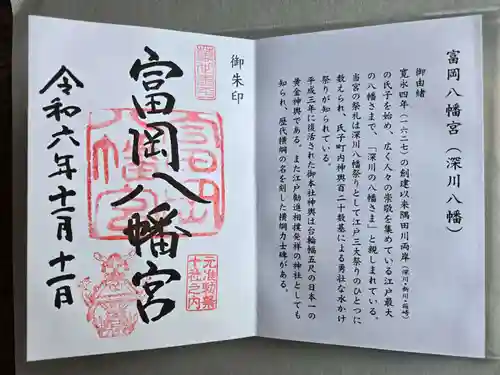 富岡八幡宮（深川八幡）
御由緒
寛永四年（一六二七）の創建以来隅田川両岸（深川・新川・箱崎）
の氏子を始め、広く人々の崇敬を集めている江戸最大
の八幡さまで、「深川の八幡さま」と親しまれている。
当宮の祭礼は深川八幡祭りとして江戸三大祭りのひとつに
数えられ、氏子町内神輿百二十数基による勇壮な水かけ
祭りが知られている。
平成三年に復活された御本社神輿は台輪幅五尺の日本一の
黄金神輿である。また江戸勧進相撲発祥の神社としても
知られ、歴代横綱の名を刻した横綱力士碑がある。
御朱印
富岡八幡宮
富岡
八幡宮
元准勅祭
十社之内
令和六年十一月十一日